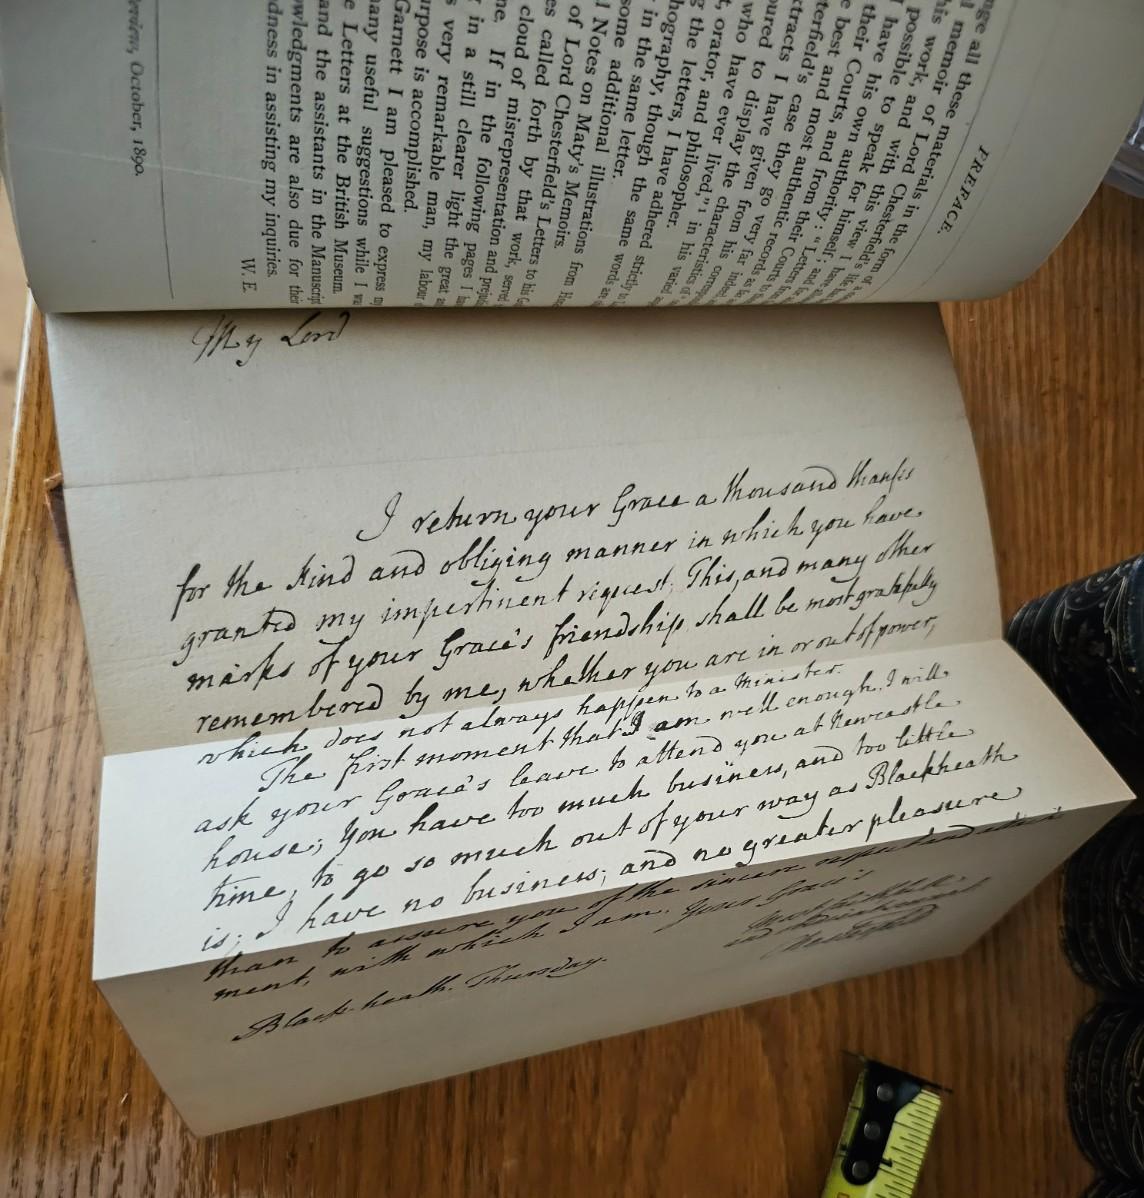 PREFACE.
nge all these materials in the form of
memoir of Lord Chesterfield's
his work, and with this view I
possible to speak for himself;
have his own authority: "
their Courts, and from their
e best and most authentic records
terfield's case they go very far
xtracts I have given from his
oured to display the characteristics
who have ever lived,"¹ in his
t, orator, and philosopher.
g the letters, I have adhered strictly to
hography, though the same words are
in the same letter.
some additional illustrations from
Notes on Maty's Memoirs
of Lord Chesterfield's Letters to his
es called forth by that work, serve
cloud of misrepresentation and
ne. If in the following pages I
in a still clearer light the great
s very remarkable man, my labour
rpose is accomplished.
Garnett I am pleased to express my
many useful suggestions while I
e Letters at the British Museum.
and the assistants in the Manuscript
wledgments are also due for their
ndness in assisting my inquiries.
W. E.
Review, October, 1890.
My Lord
I return your Grace a thousand thanks
for the kind and obliging manner in which you have
granted my impertinent request; This, and many other
marks of your Grace's friendship shall be most gratefully
remembered by me, whether you are in or out of power,
which does not always happen to a Minister.
The first moment that I am well enough, I will
ask your Grace's leave to attend you at Newcastle
house; You have too much business, and too little
time, to go so much out of your way as Blackheath
is; I have no business; and no greater pleasure
than to assure you of the sincere respect and
ment, with which I am, Your Grace's
Chesterfield
Black-heath. Thursday.